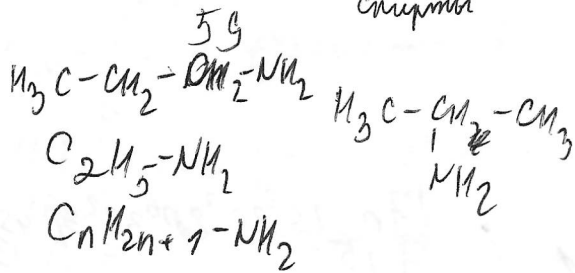 спирты
59
H₃C-CH₂-CH₂-NH₂
H₃C-CH-CH₃
NH₂
C₂H₅-NH₂
CₙH₂ₙ₊₁-NH₂